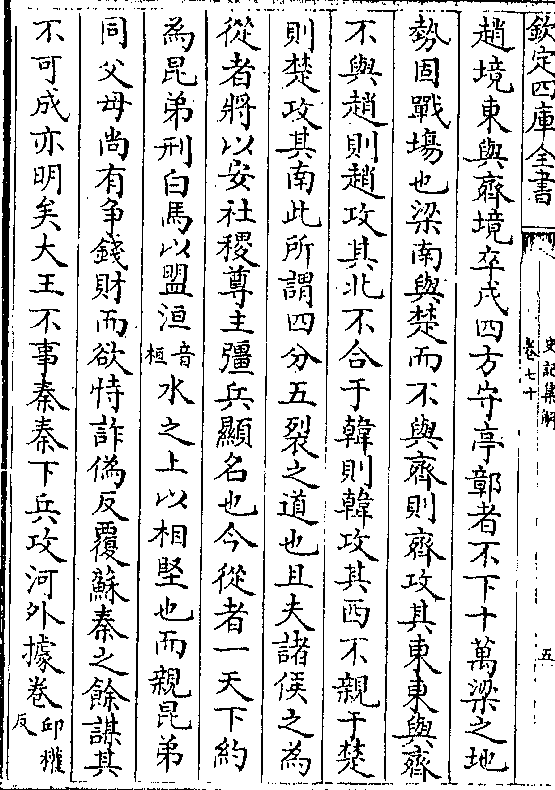 欽定四庫全書
史記集解
卷七十
五
趙境東與齊境卒戍四方守亭鄣者不下十萬梁之地
勢固戰場也梁南與楚而不與齊則齊攻其東東與齊
不與趙則趙攻其北不合于韓則韓攻其西不親于楚
則楚攻其南此所謂四分五裂之道也且夫諸侯之為
從者將以安社稷尊主彊兵顯名也今從者一天下約
為昆弟刑白馬以盟洹音桓水之上以相堅也而親昆弟
同父母尚有爭錢財而欲恃詐偽反覆蘇秦之餘謀其
不可成亦明矣大王不事秦秦下兵攻河外據卷邱權反